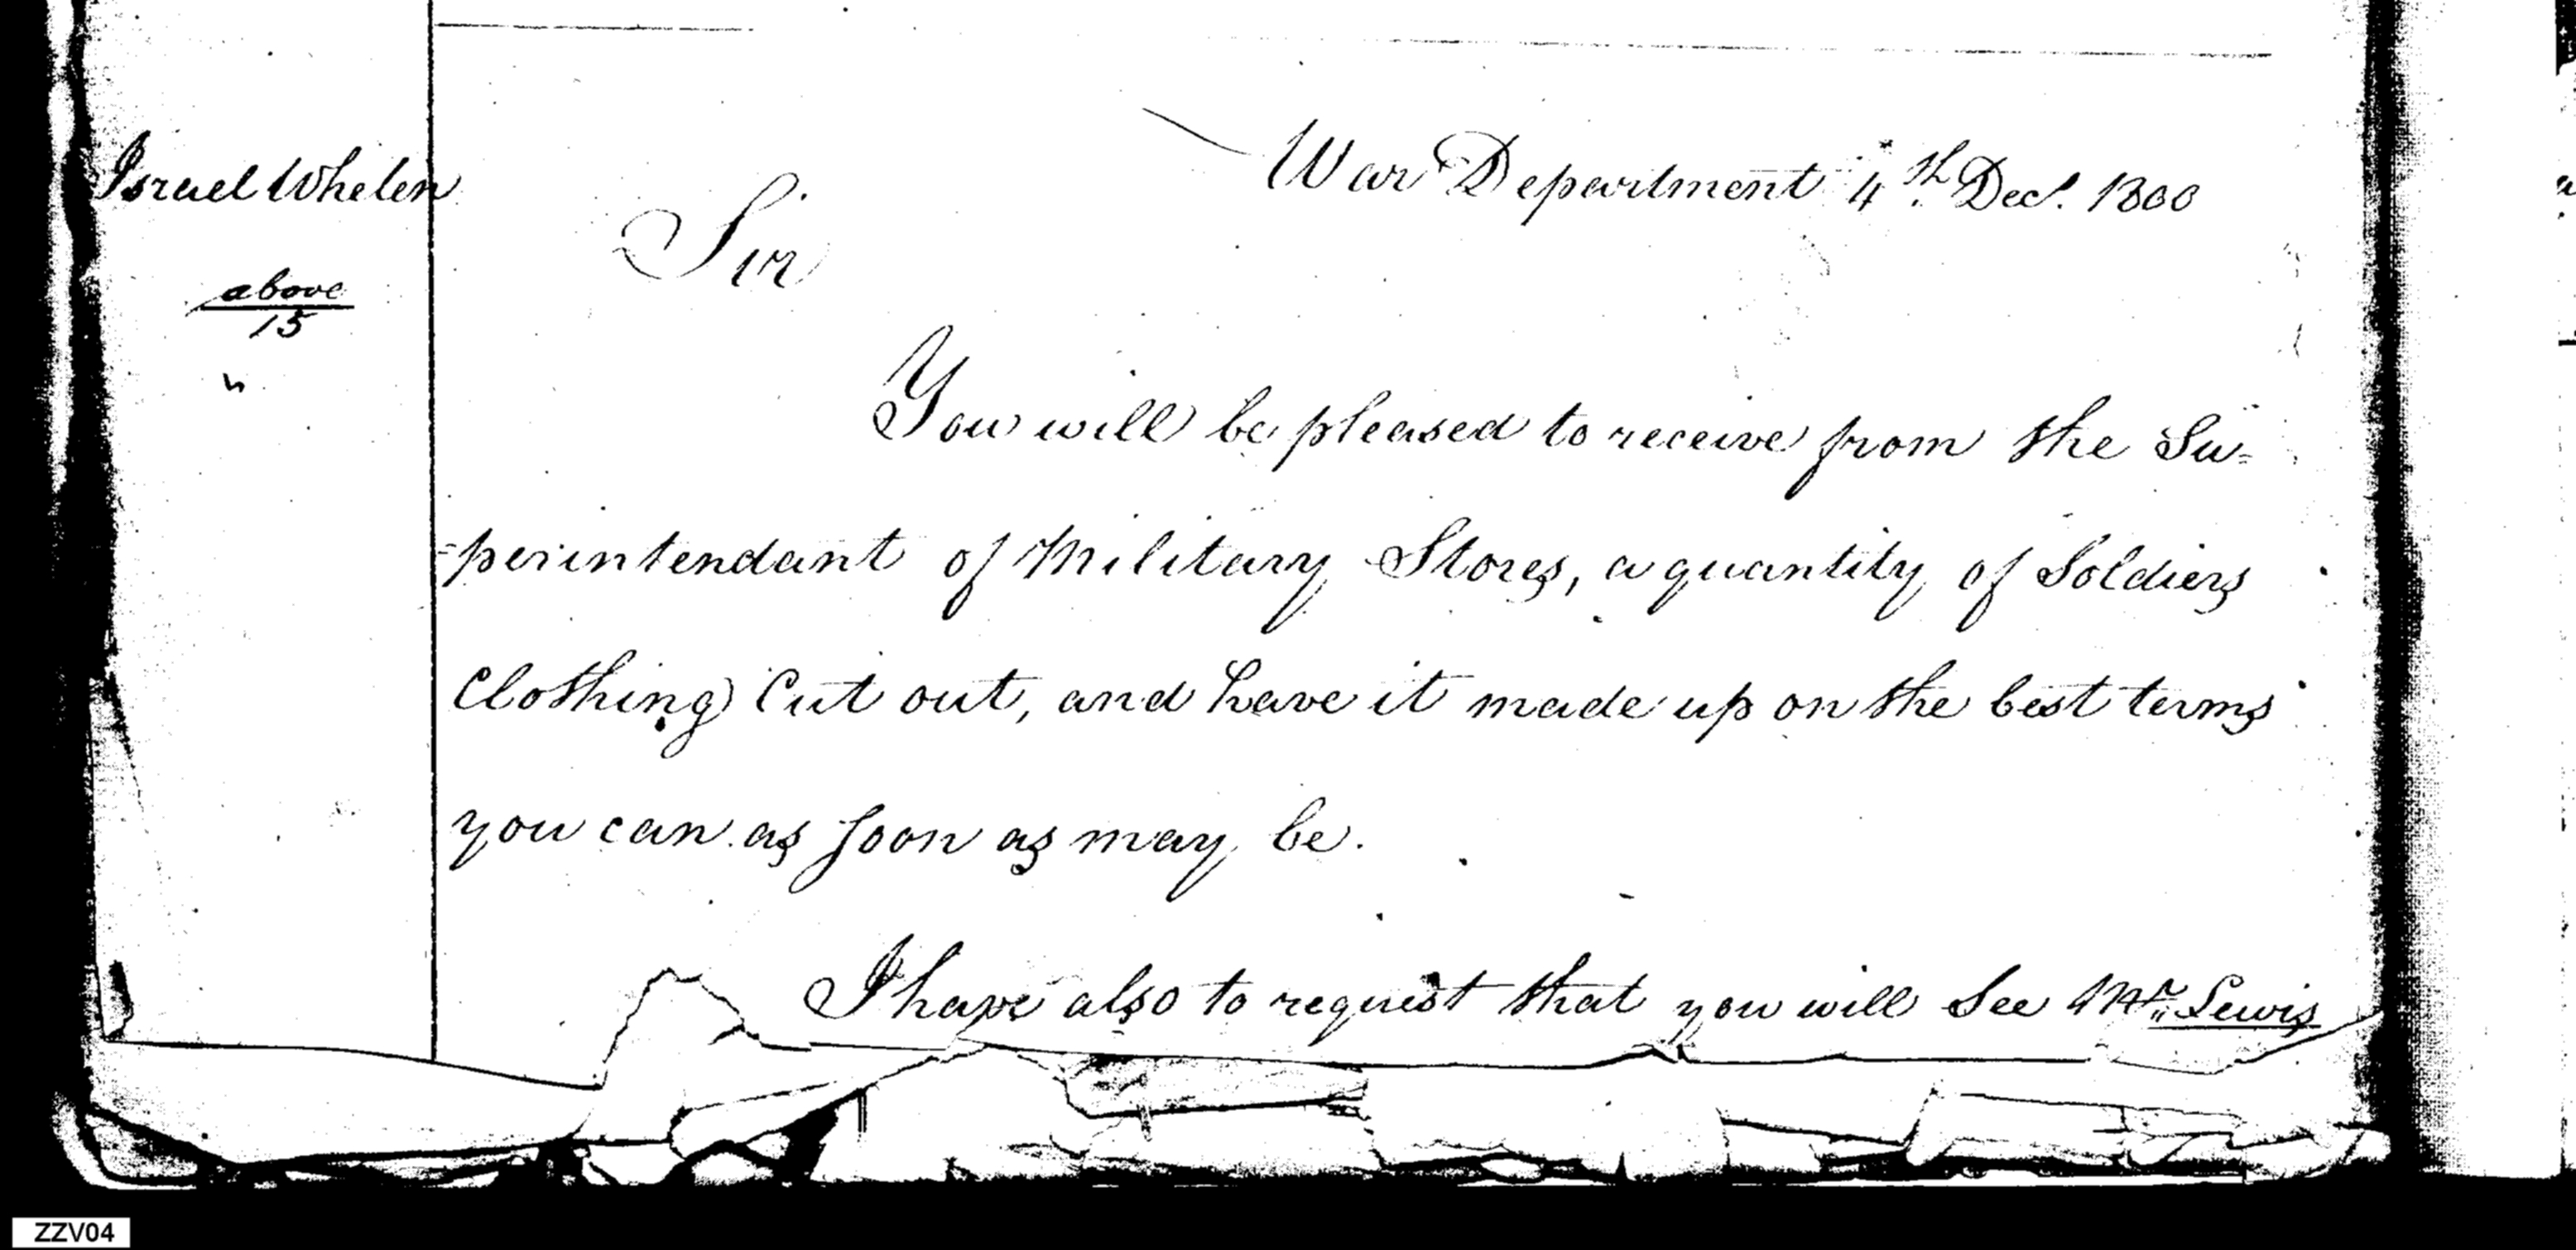 Israel Whelen
above
15
War Department 4th. Decr. 1800
Sir
You will be pleased to receive from the Su=
=perintendant of Military Stores, a quantity of Soldiers
Clothing Cut out, and have it made up on the best terms
you can as soon as may be.
I have also to request that you will See Mr. Lewis
ZZV04